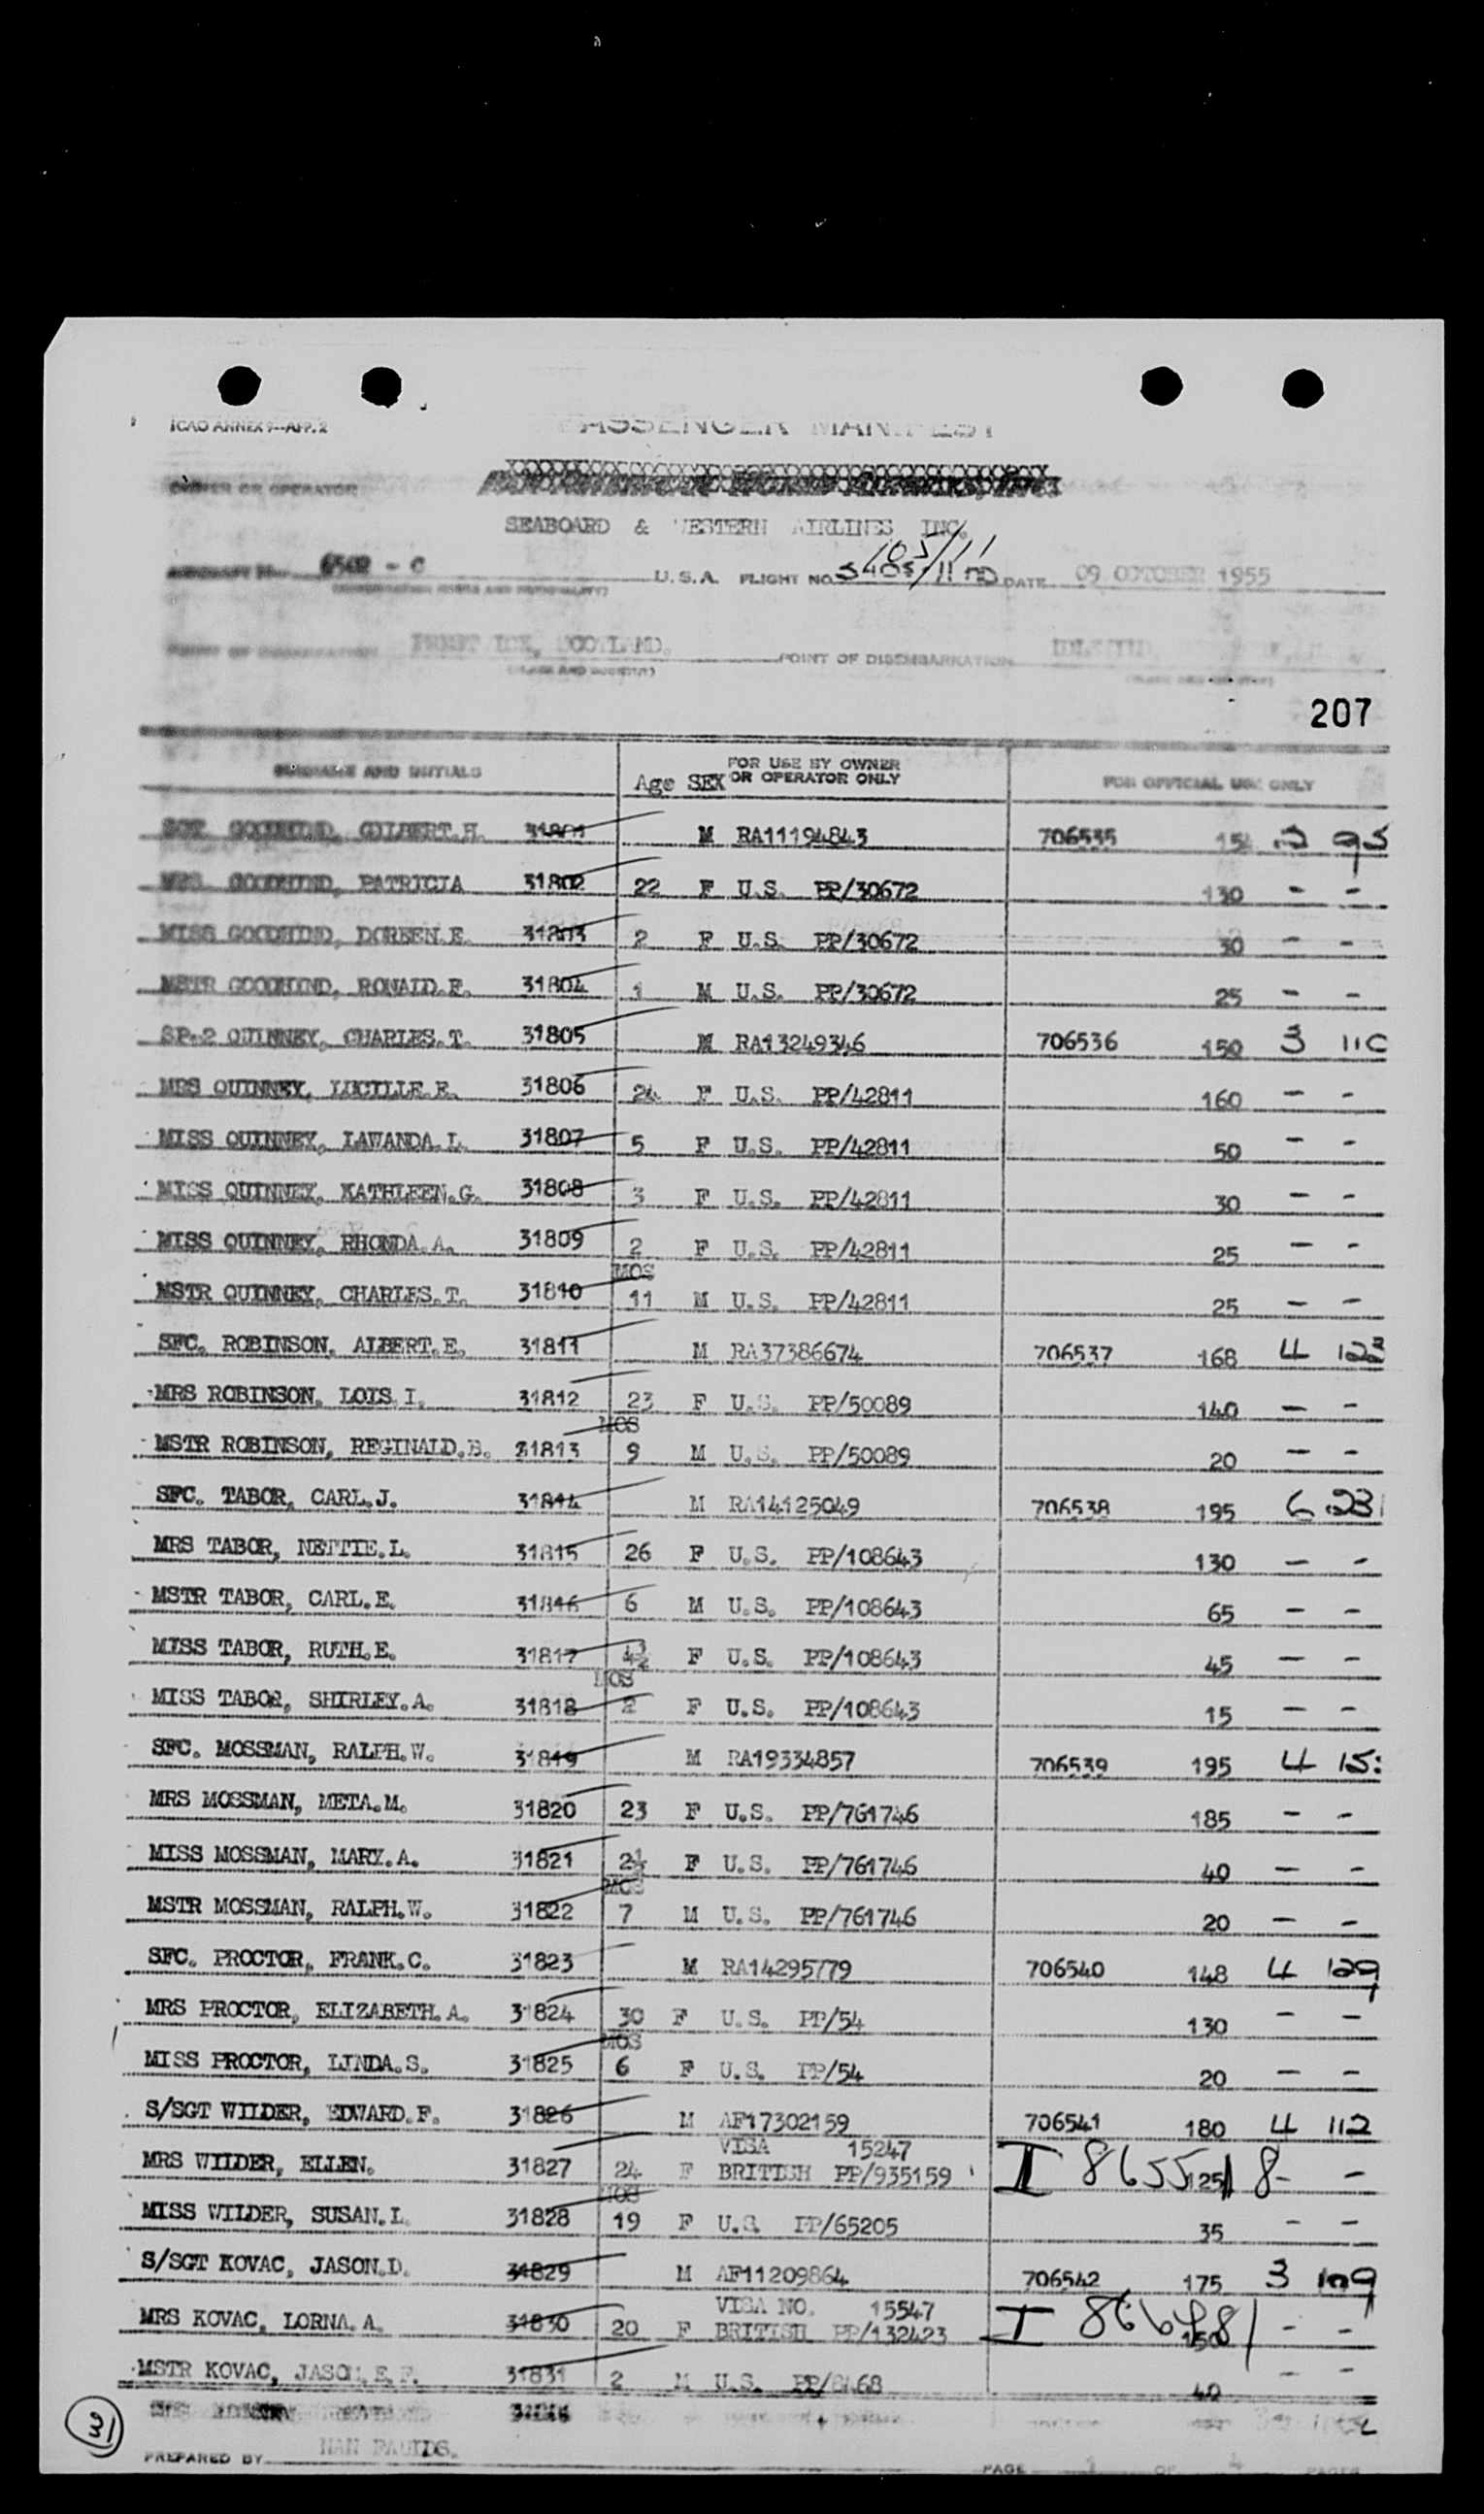 ICAO ANNEX 9-APP. 2
PASSENGER MANIFEST
OWNER OR OPERATOR
SEABOARD & WESTERN AIRLINES INC.
105/11
AIRCRAFT 6502 - C U.S.A. FLIGHT NO. DATE 09 OCTOBER 1955
POINT OF EMBARKATION PRESTWICK, SCOTLAND. POINT OF DISEMBARKATION
207
SURNAME AND INITIALS Age SEX FOR USE BY OWNER OR OPERATOR ONLY FOR OFFICIAL USE ONLY
SGT. GILBERT.H. 31801 M RA11194843 706535 154 95
MRS PATRICIA 31802 22 F U.S. PP/30672 130 - -
MISS DOREEN.E. 31803 2 F U.S. PP/30672 30 - -
MSTR RONALD.E. 31804 1 M U.S. PP/30672 25 - -
SP-2 QUINNEY, CHARLES.T. 31805 M RA13249346 706536 150 3 110
MRS QUINNEY, LUCILLE.E. 31806 24 F U.S. PP/42811 160 - -
MISS QUINNEY, LAWANDA.L. 31807 5 F U.S. PP/42811 50 - -
MISS QUINNEY, KATHLEEN.G. 31808 3 F U.S. PP/42811 30 - -
MISS QUINNEY, RHONDA.A. 31809 2 F U.S. PP/42811 25 - -
MSTR QUINNEY, CHARLES.T. 31810 MOS 11 M U.S. PP/42811 25 - -
SFC. ROBINSON, ALBERT.E. 31811 M RA37386674 706537 168 4 123
MRS ROBINSON, LOIS.I. 31812 23 F U.S. PP/50089 140 - -
MSTR ROBINSON, REGINALD.B. 31813 MOS 9 M U.S. PP/50089 20 - -
SFC. TABOR, CARL.J. 31814 M RA14125049 706538 195 6 231
MRS TABOR, NETTIE.L. 31815 26 F U.S. PP/108643 130 - -
MSTR TABOR, CARL.E. 31816 6 M U.S. PP/108643 65 - -
MISS TABOR, RUTH.E. 31817 F U.S. PP/108643 45 - -
MISS TABOR, SHIRLEY.A. 31818 MOS 2 F U.S. PP/108643 15 - -
SFC. MOSSMAN, RALPH.W. 31819 M RA19334857 706539 195 4 15
MRS MOSSMAN, META.M. 31820 23 F U.S. PP/761746 185 - -
MISS MOSSMAN, MARY.A. 31821 2½ F U.S. PP/761746 40 - -
MSTR MOSSMAN, RALPH.W. 31822 MOS 7 M U.S. PP/761746 20 - -
SFC. PROCTOR, FRANK.C. 31823 M RA14295779 706540 148 4 129
MRS PROCTOR, ELIZABETH.A. 31824 30 F U.S. PP/54 130 - -
MISS PROCTOR, LINDA.S. 31825 MOS 6 F U.S. PP/54 20 - -
S/SGT WILDER, EDWARD.F. 31826 M AF17302159 706541 180 4 112
VISA 15247
MRS WILDER, ELLEN. 31827 24 F BRITISH PP/935159 I 8655118 125 - -
MISS WILDER, SUSAN.L. 31828 MOS 19 F U.S. PP/65205 35 - -
S/SGT KOVAC, JASON.D. 31829 M AF11209864 706542 175 3 109
VISA NO. 15547
MRS KOVAC, LORNA.A. 31830 20 F BRITISH PP/132423 I 150 - -
MSTR KOVAC, JASON.E.F. 31831 2 M U.S. 40 - -
31
PREPARED BY
PAGE 1 OF 4 PAGES